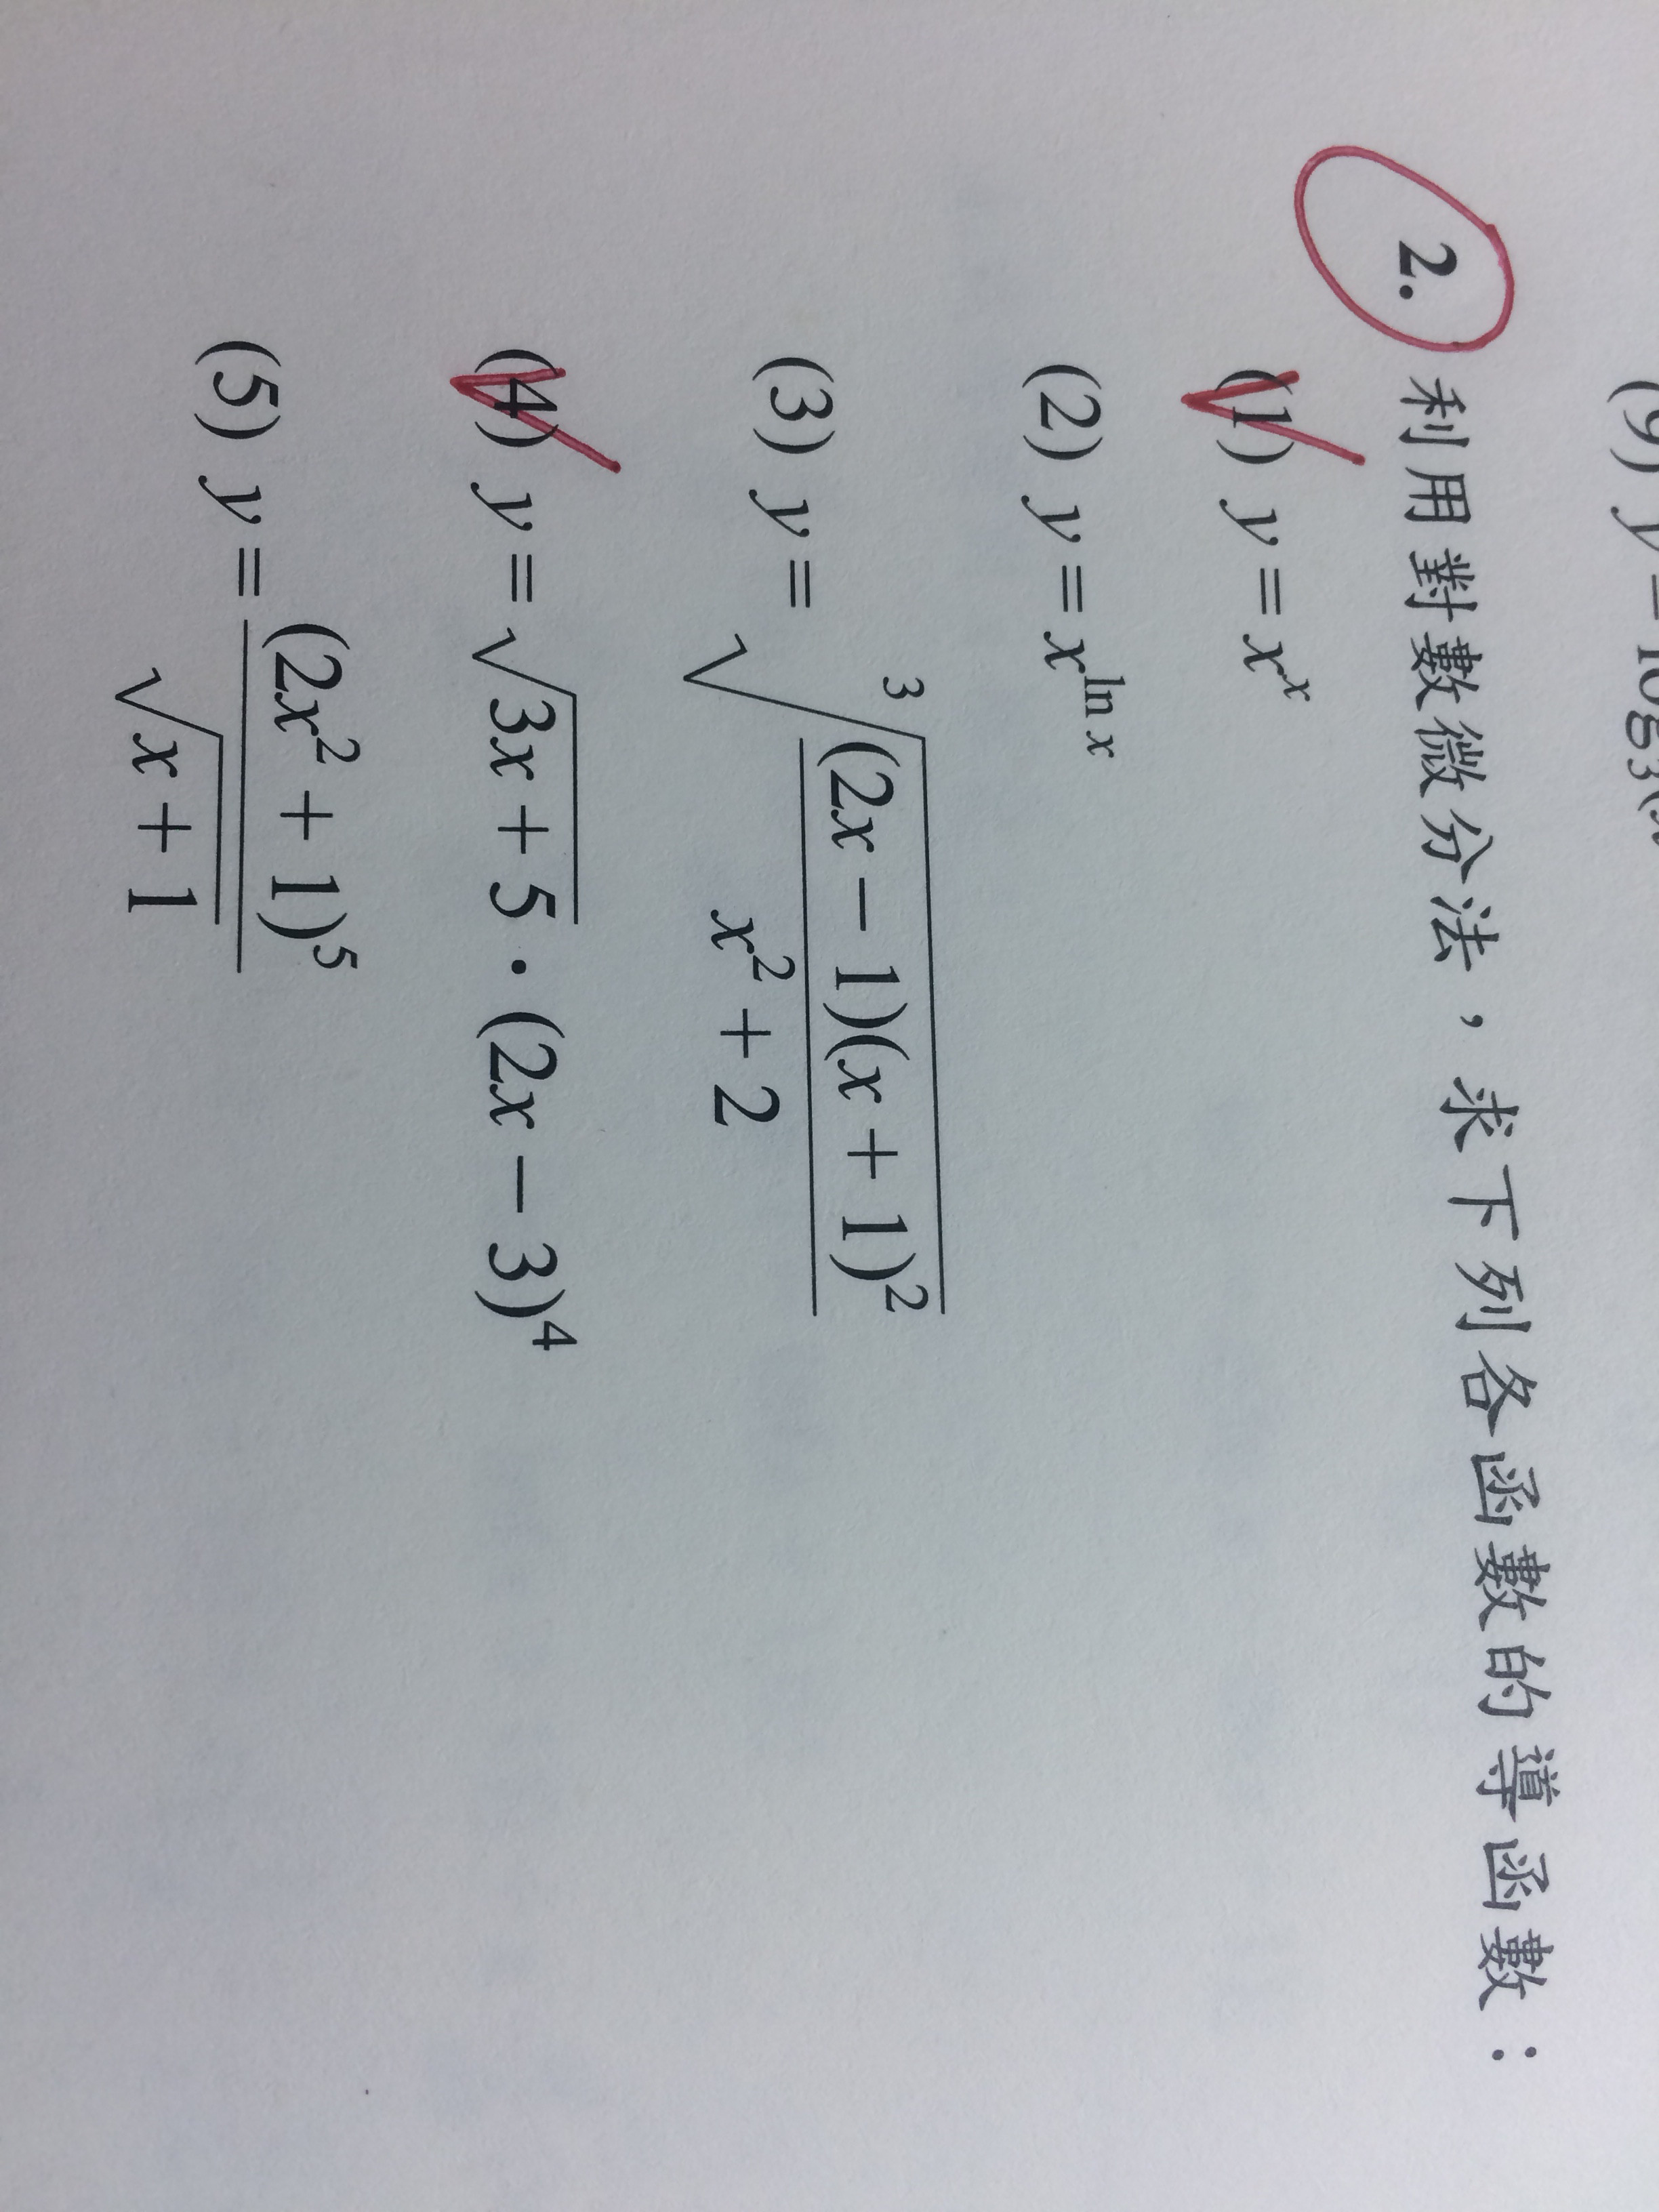 (9) y = log₃(x
2. 利用對數微分法，求下列各函數的導函數：
(1) y = x^x
(2) y = x^{ln x}
(3) y = ∛((2x − 1)(x + 1)² / (x² + 2))
(4) y = √(3x + 5) · (2x − 3)⁴
(5) y = (2x² + 1)⁵ / √(x + 1)